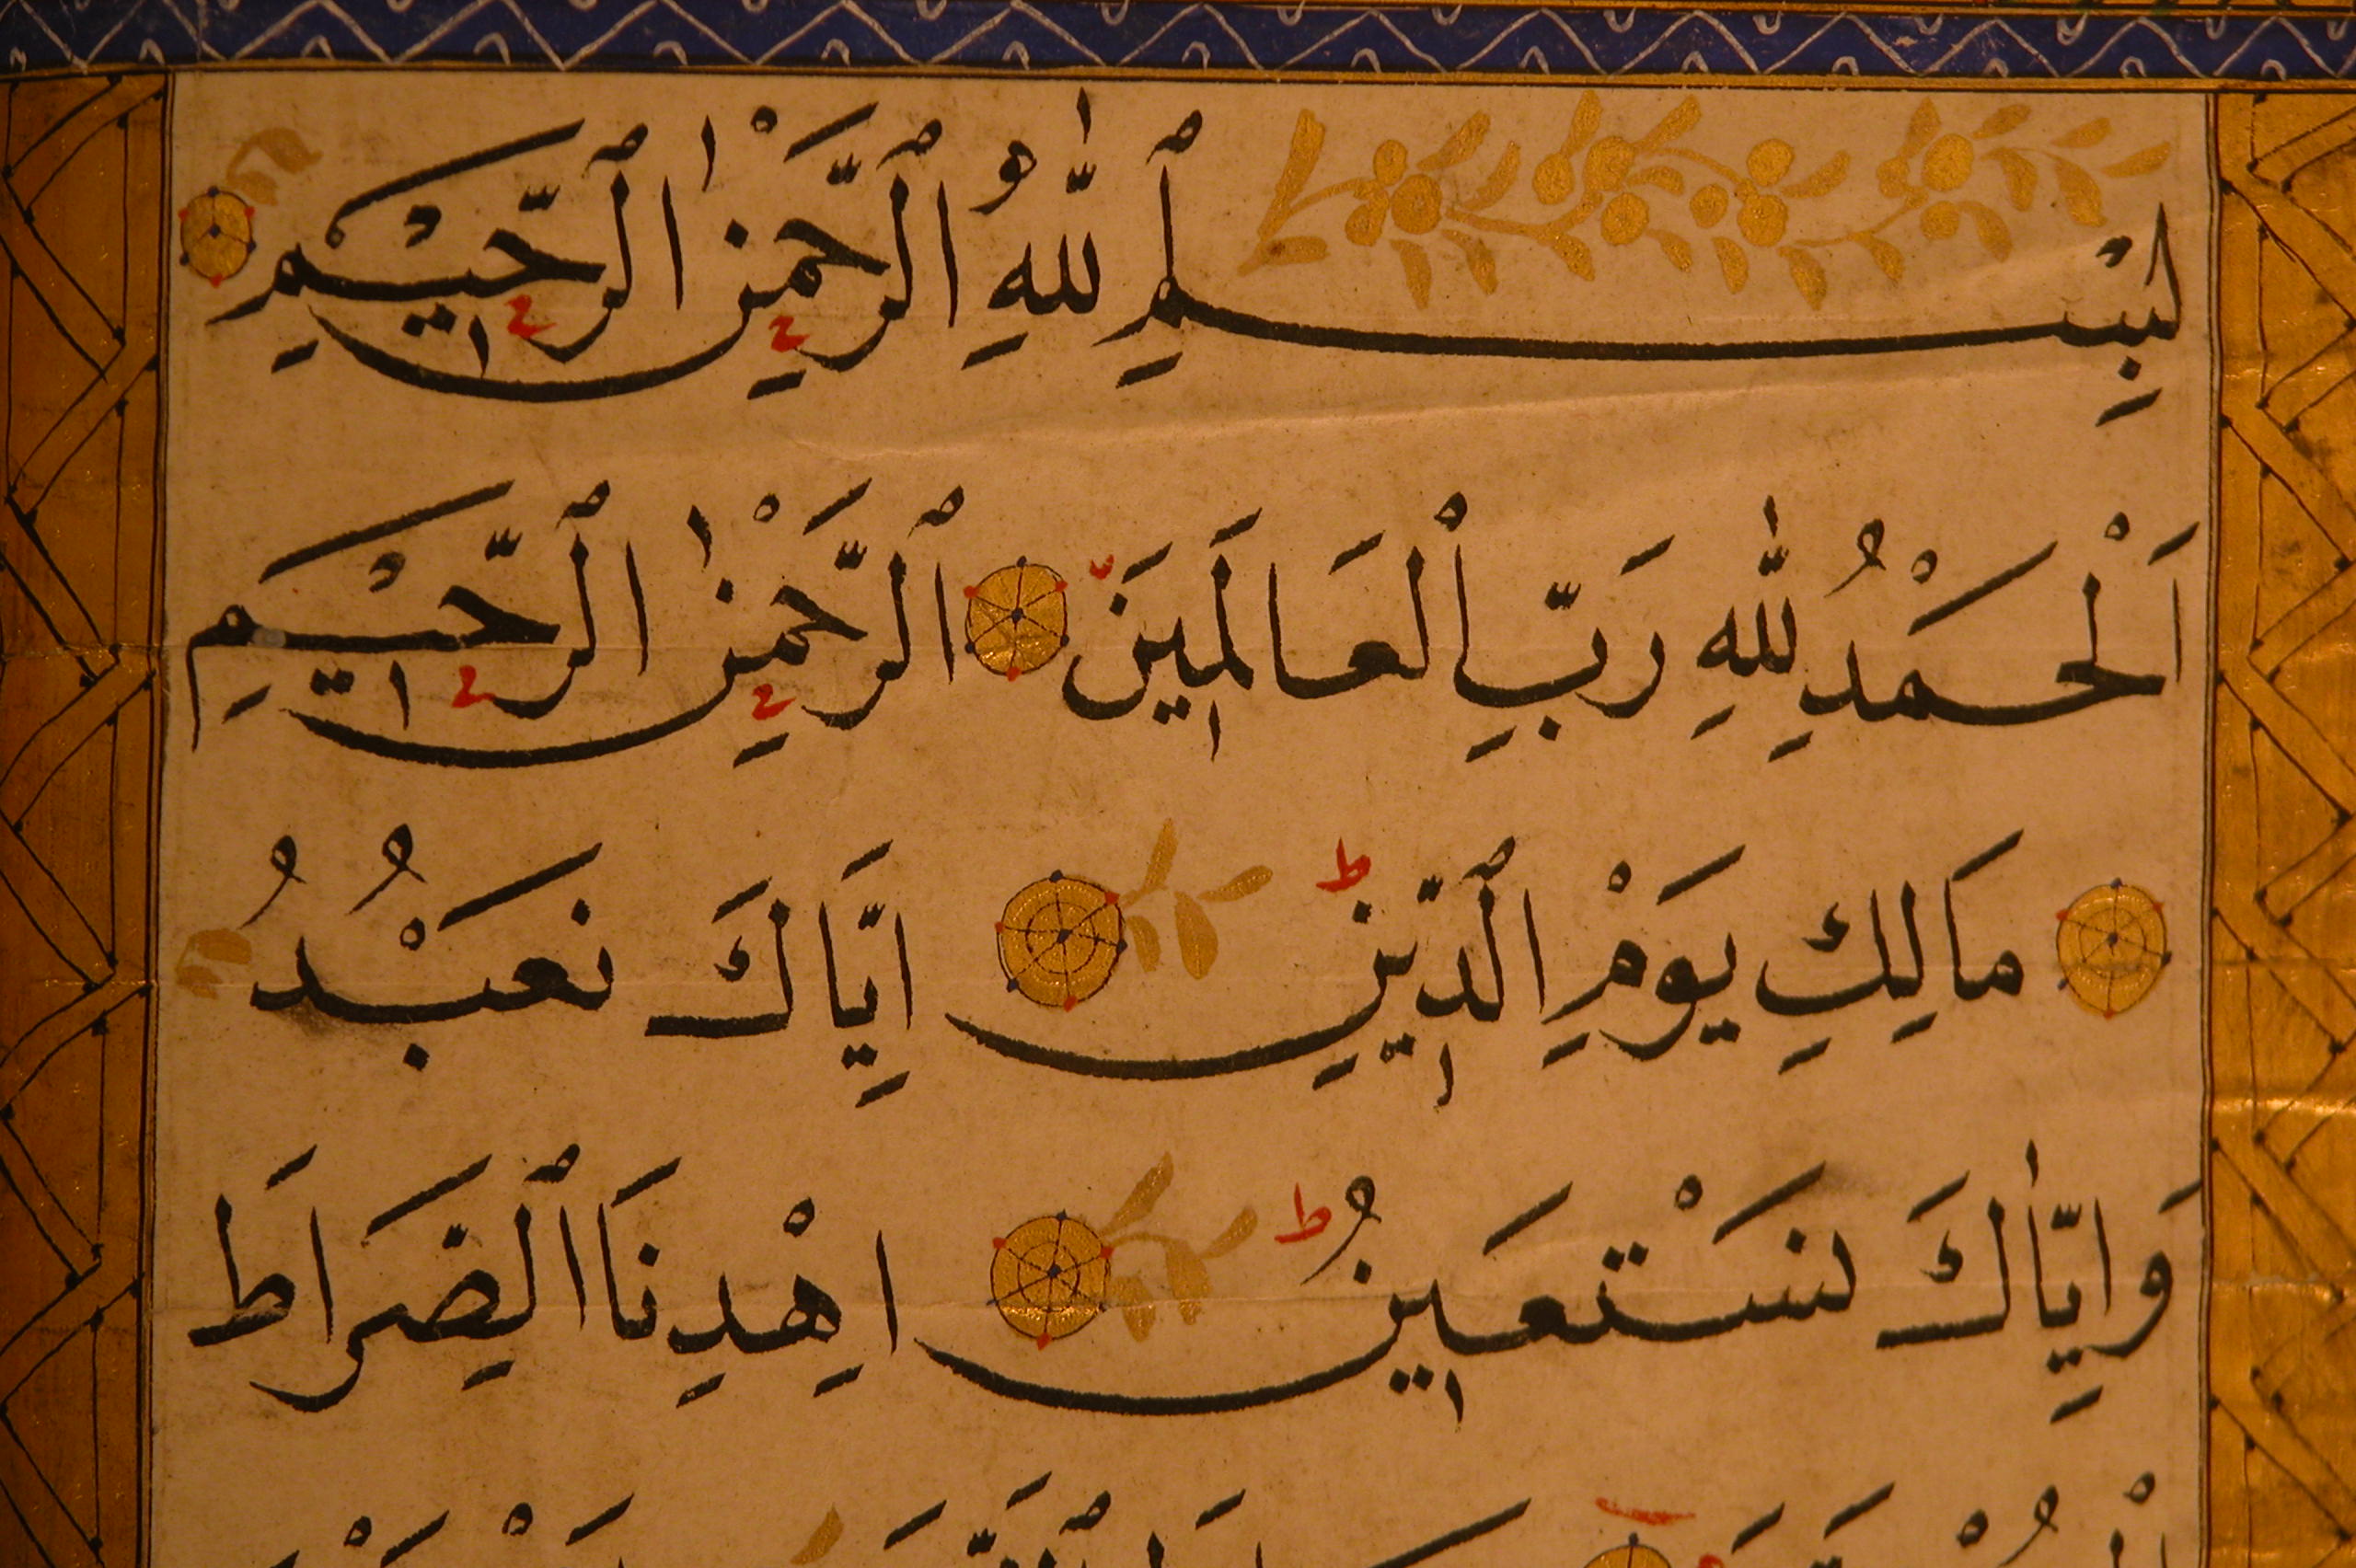 بِسْمِ ٱللّٰهِ ٱلرَّحْمٰنِ ٱلرَّحِيْمِ
اَلْحَمْدُ لِلّٰهِ رَبِّ الْعَالَمِينَ ٱلرَّحْمٰنِ ٱلرَّحِيْمِ
مَالِكِ يَوْمِ ٱلدِّينِ اِيَّاكَ نَعْبُدُ
وَاِيَّاكَ نَسْتَعِينُ اِهْدِنَا ٱلصِّرَاطَ